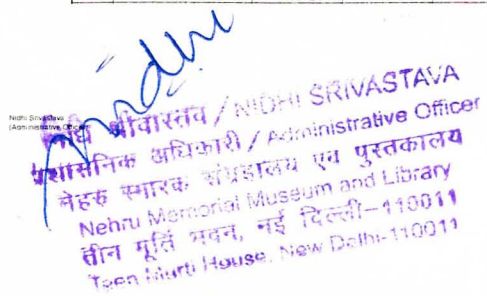 Nidhi
Nidhi Srivastava
(Administrative Officer)
निधि श्रीवास्तव / NIDHI SRIVASTAVA
प्रशासनिक अधिकारी / Administrative Officer
नेहरू स्मारक संग्रहालय एवं पुस्तकालय
Nehru Memorial Museum and Library
तीन मूर्ति भवन, नई दिल्ली-110011
Teen Murti House, New Delhi-110011